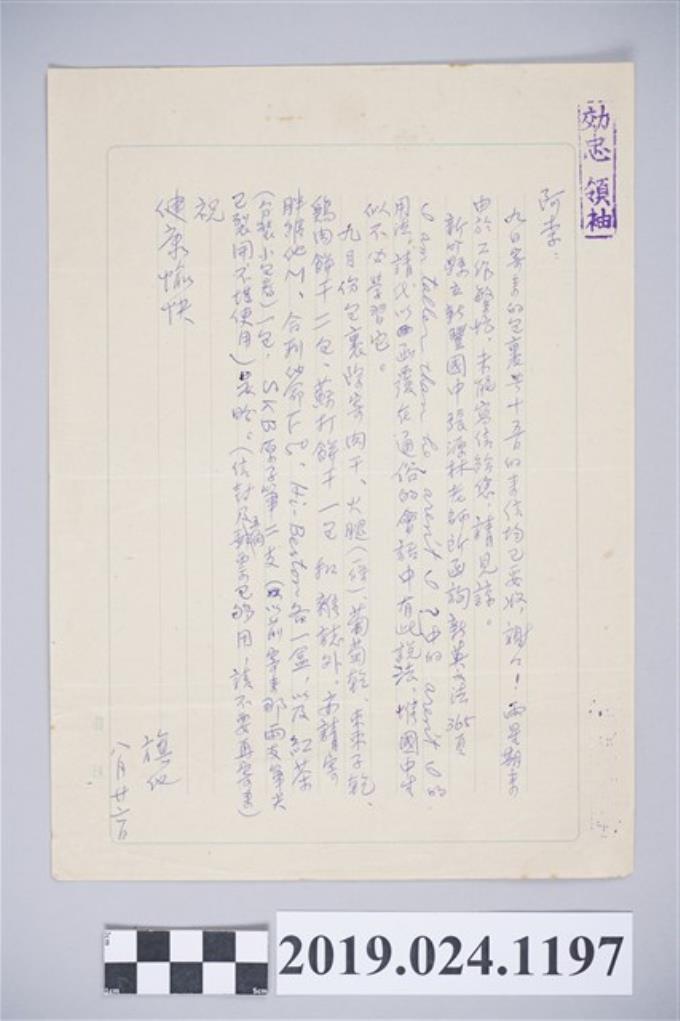 効忠領袖
阿李：
九日寄來的包裹與十五日的來信均已妥收，謝謝！兩星期來
由於工作繁忙，未能寫信給您，請見諒。
新竹縣立新豐國中張源林老師所函詢新英文法365頁
I am taller than he aren't I? 中的 aren't I 的
用法，請代以函覆在通俗的會話中有此說法，惟國中生
似不必學習它。
九月份包裹除寄肉干、火腿（一條）、葡萄乾、
鷄肉餅干二包、蘇打餅干一包和雜誌外，亦請寄
胖維他M、合利他命F、Hi-Beston各一盒，以及紅茶
（合裝小包者）一包，SKB原子筆二支（以前寄來那兩支筆尖
已裂開不堪使用）是盼。（信封及郵票已够用，請不要再寄來）
祝
健康愉快
旗化
八月廿六日
2cm
0cm
5cm
2019.024.1197